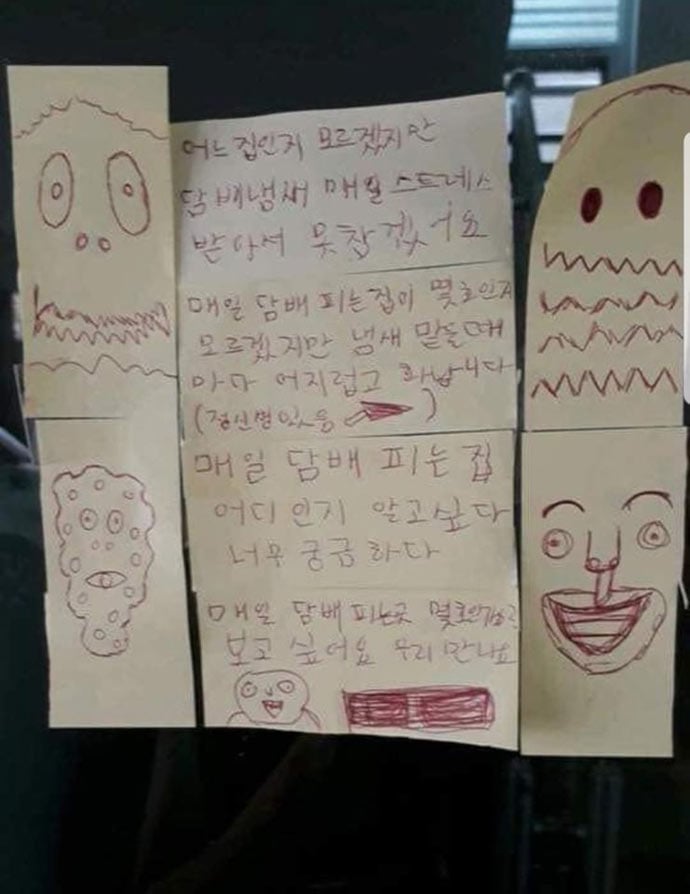 어느집인지 모르겠지만
담배냄새 매일 스트레스
받아서 못참겠어요
매일 담배 피는집이 몇호인지
모르겠지만 냄새 맡을때
마다 어지럽고 화납니다
(정신병있음 )
매일 담배 피는 집
어디인지 알고싶다
너무 궁금하다
매일 담배 피는곳 몇호인가요?
보고 싶어요 우리 만나요